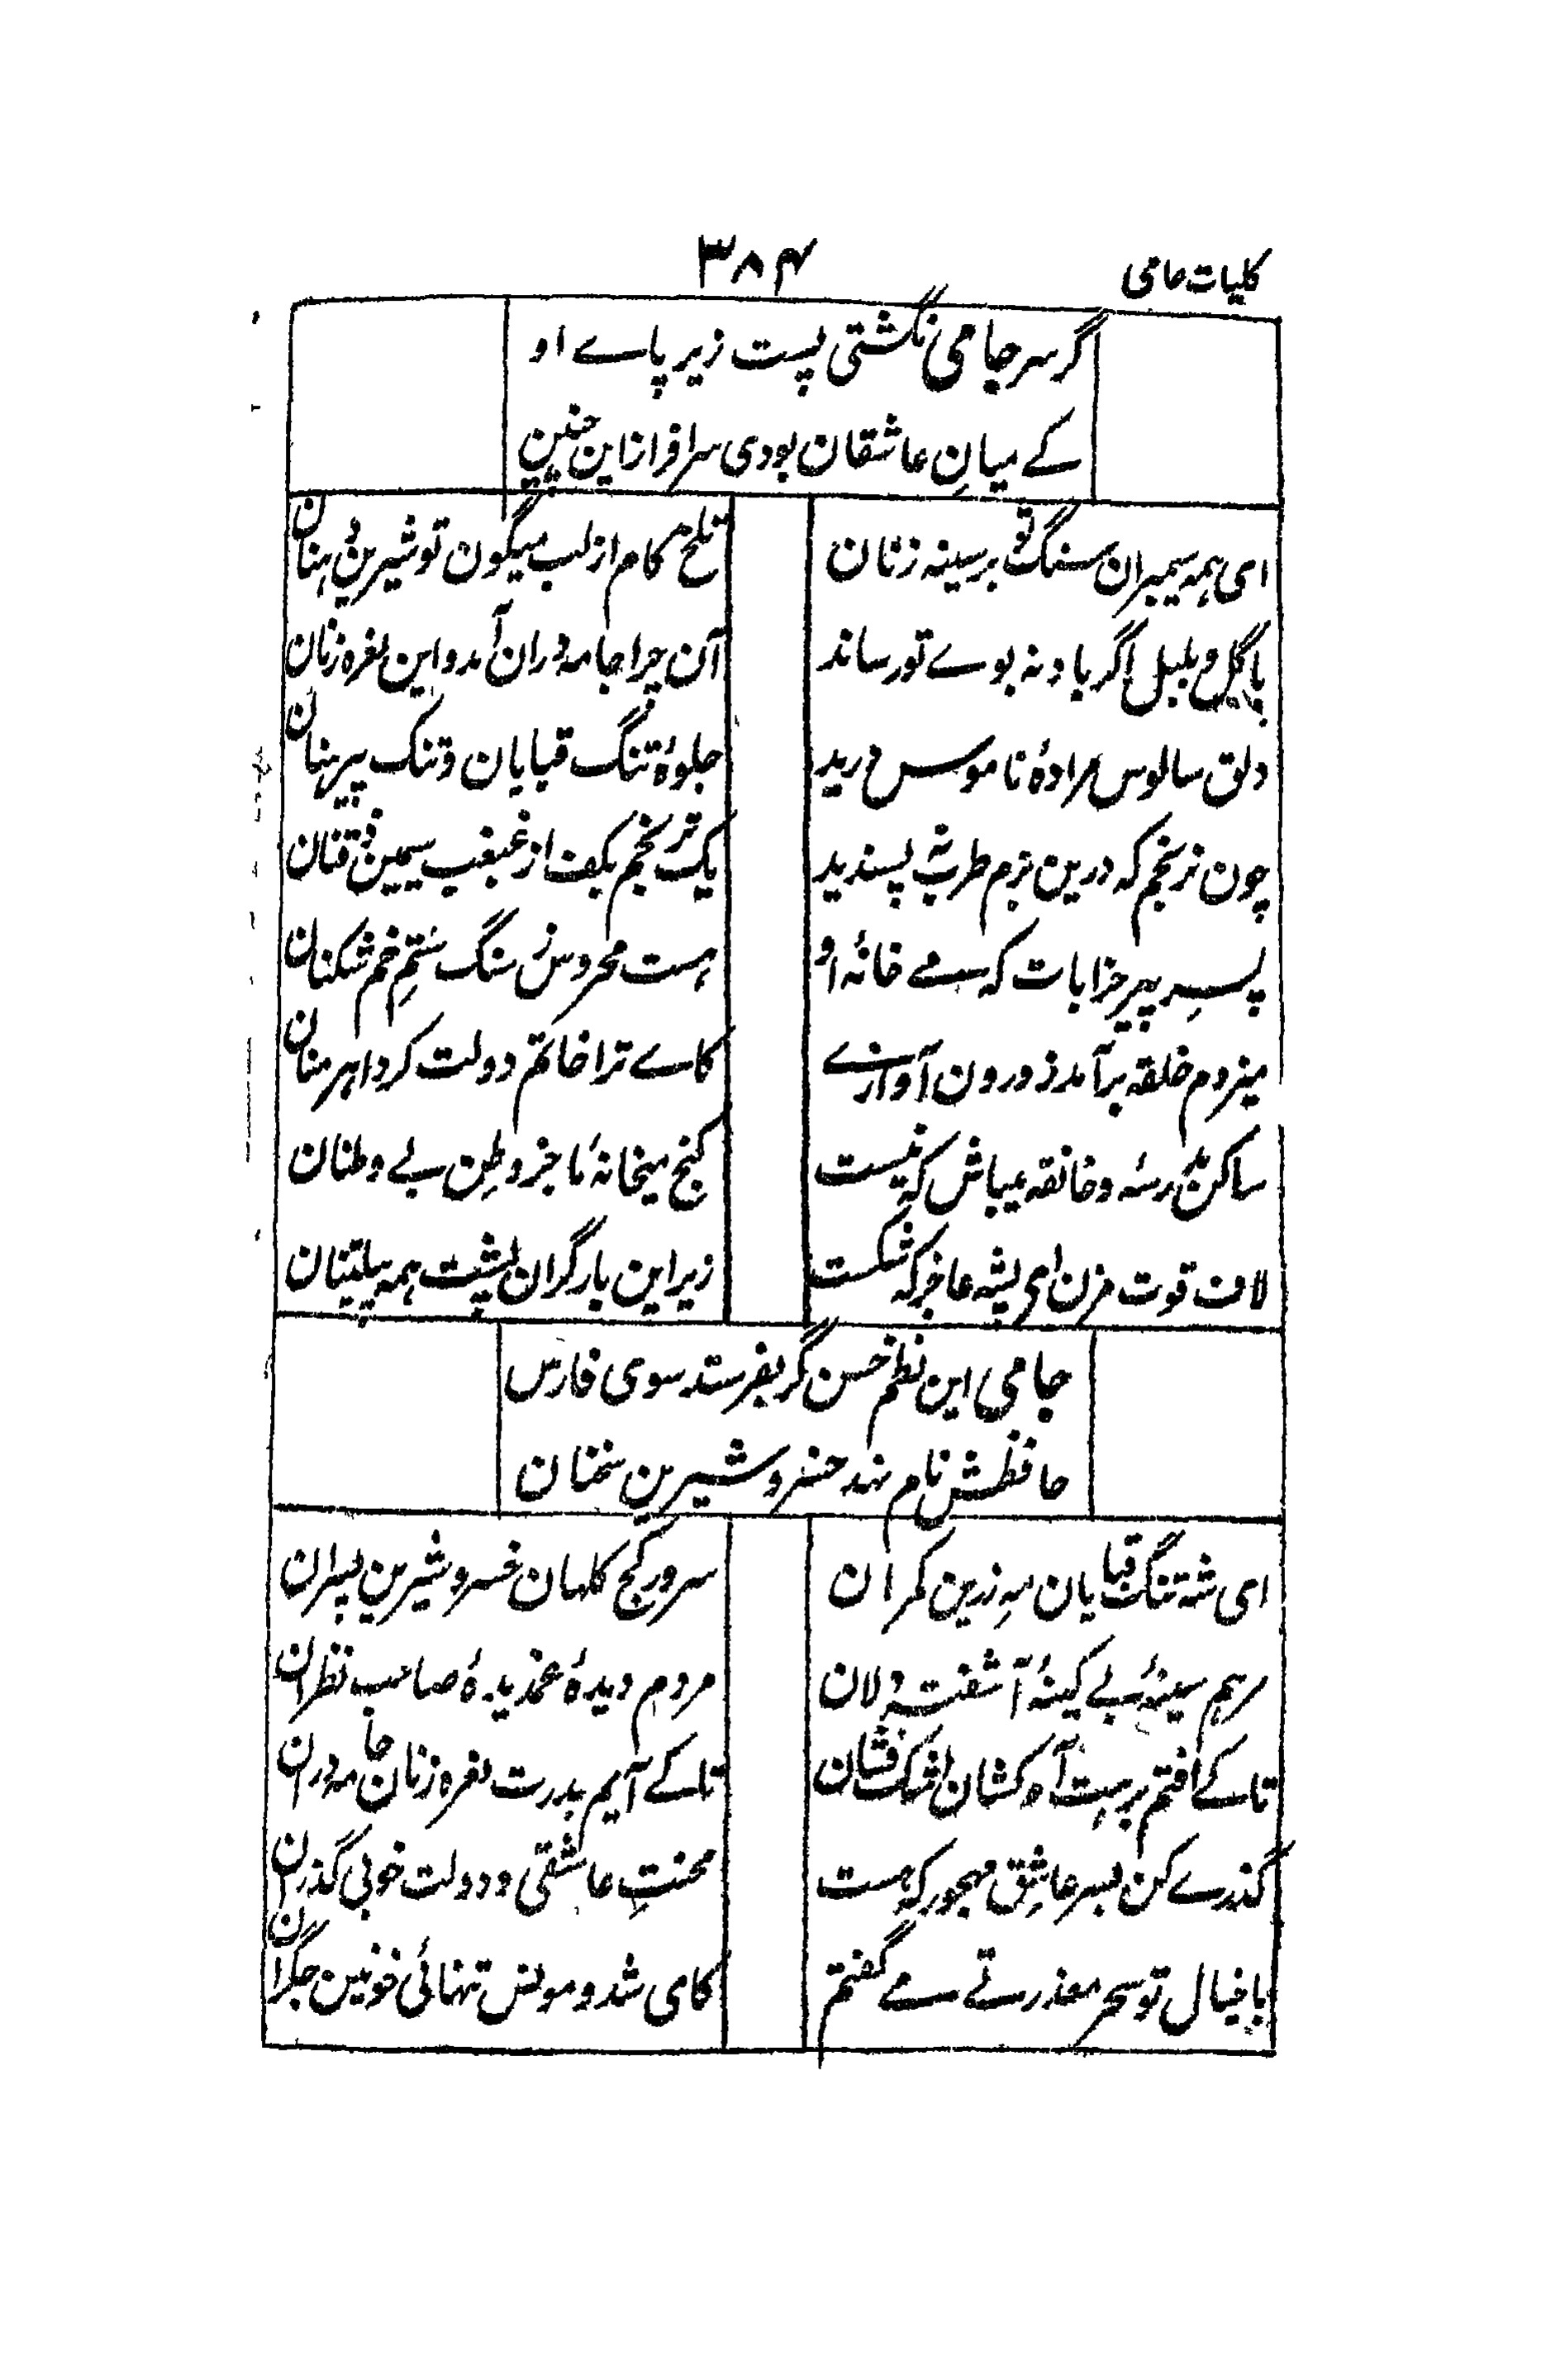 کلیات جامی
۳۸۴
گر سر جامی نگشتی پست زیر پاے او
کے میانِ عاشقان بودی سرافراز این چنین
ای همه سیمبران سنگ تو بر سینه زنان
تلخ کام از لب میگون تو شیرین دهنان
با گل و بلبل اگر باد نه بوے تو رساند
آن چرا جامه دران آمد و این نعره زنان
دلق سالوس مرا دۀ ناموس درید
جلوۀ تنگ قبایان و تنک پیرهنان
چون نرنجم که درین بزم طرب نه پسندید
یک ترنجم بکف از غبغب سیمین ذقنان
پسرِ پیر خرابات که مے خانۀ او
هست محروس ز سنگ ستمِ خم شکنان
میزدم حلقه برآمد ز درون آوازے
کاے ترا خاتم دولت کرد اهرمنان
ساکن مدرسه و خانقه میباش که نیست
کنج میخانۀ ما جز وطنِ بے وطنان
لاف قوت مزن ای پشه عاجز که شکست
زیر این بار گران پشت همه پیلتنان
جامی این نظم حسن گر بفرستد سوی فارس
حافظش نام نهد خسرو شیرین سخنان
ای شه تنگ قبایان مهِ زرین کمران
سرور کج کلهان خسرو شیرین پسران
مرهم سینۀ بے کینۀ آشفته دلان
مردم دیدۀ غمدیدۀ صاحب نظران
تا کے افتم برهت آه کشان اشک فشان
تا کے آیم بدرت نعره زنان جامه دران
گذرے کن بسر عاشقِ مهجور که هست
محنتِ عاشقی و دولت خوبی گذران
با خیال تو سحر معذرتے مے گفتم
کای شد و مونس تنهائی خونین جگران